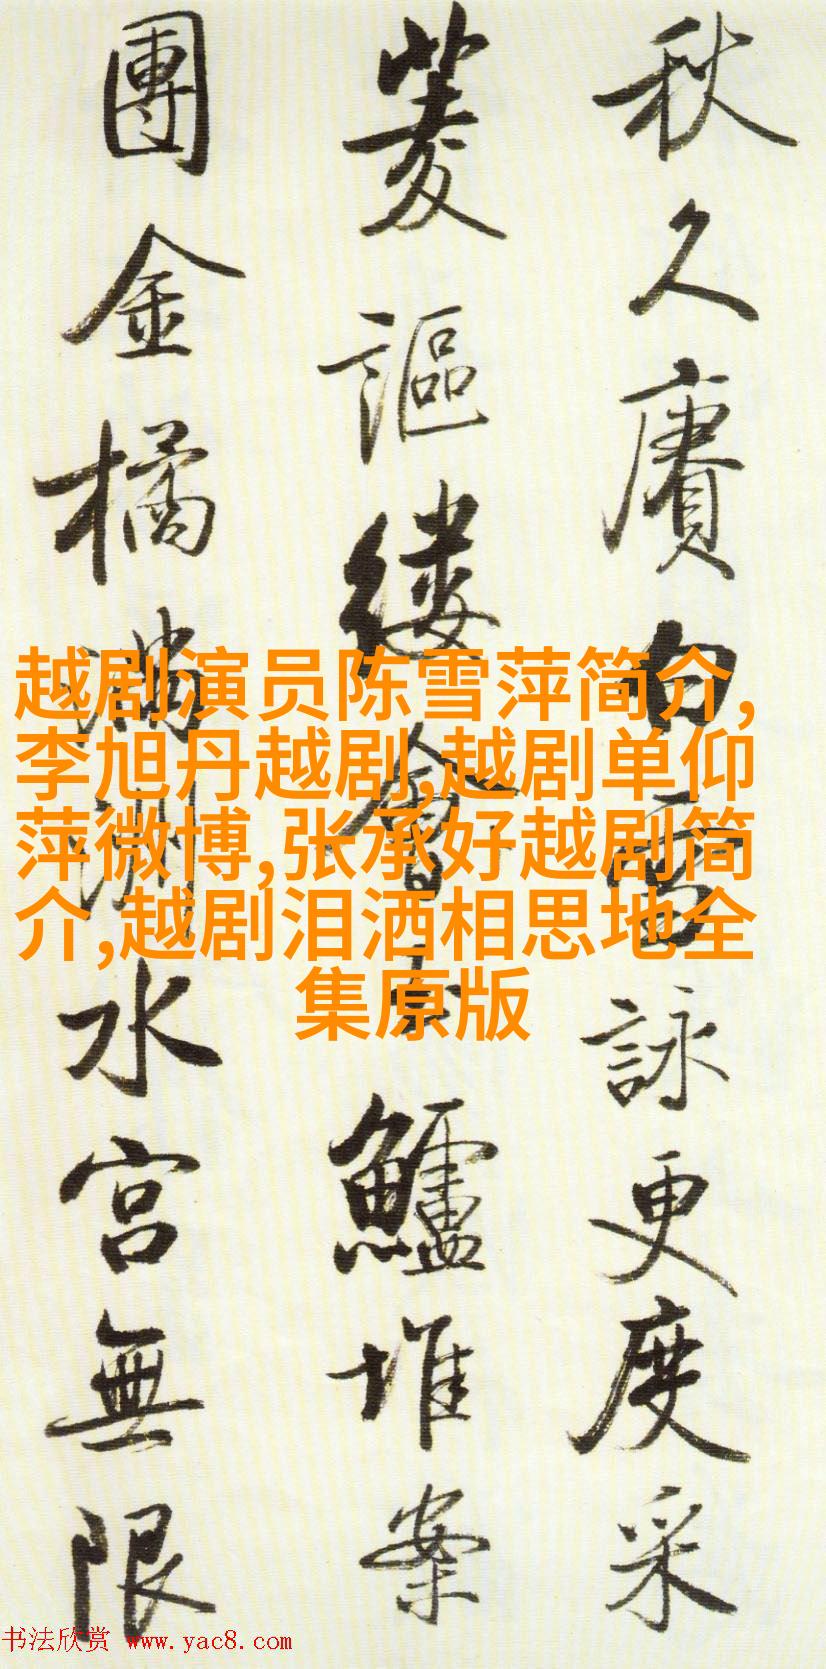 秋久賡白雪詠更度采
菱謳縷會玉鱸堆案
團金橘滿洲水宮無限
越剧演员陈雪萍简介,
李旭丹越剧,越剧单仰
萍微博,张承好越剧简
介,越剧泪洒相思地全
集原版
书法欣赏 www.yac8.com